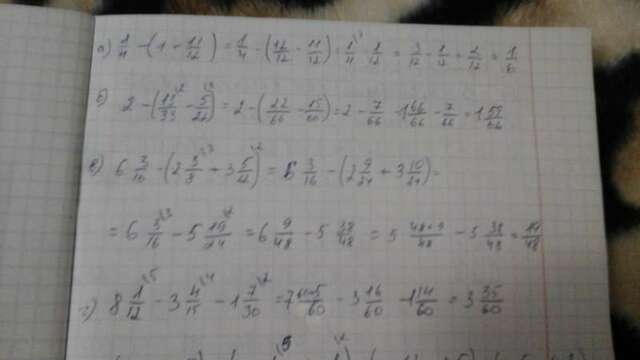 а) 1/4 - (1 - 11/12) = 1/4 - (12/12 - 11/12) = 1/4 - 1/12 = 3/12 - 1/12 = 2/12 = 1/6
б) 2 - (11/33 - 5/22) = 2 - (22/66 - 15/66) = 2 - 7/66 = 1 66/66 - 7/66 = 1 59/66
в) 6 3/16 - (2 3/8 + 3 5/12) = 6 3/16 - (2 9/24 + 3 10/24) =
= 6 3/16 - 5 19/24 = 6 9/48 - 5 38/48 = 5 48+9/48 - 5 38/48 = 19/48
г) 8 1/12 - 3 4/15 - 1 7/30 = 7 60+5/60 - 3 16/60 - 1 14/60 = 3 35/60